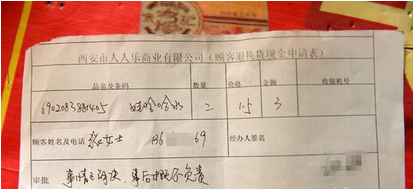 西安市人人乐商业有限公司(顾客退换货现金申请表)
品名及条码 数量 价格 金额 收银机号
6902083881405 娃哈哈水 2 1.5 3
顾客姓名及电话 张女士 136 69 经办人签名
审批 事情已解决,事后概不负责